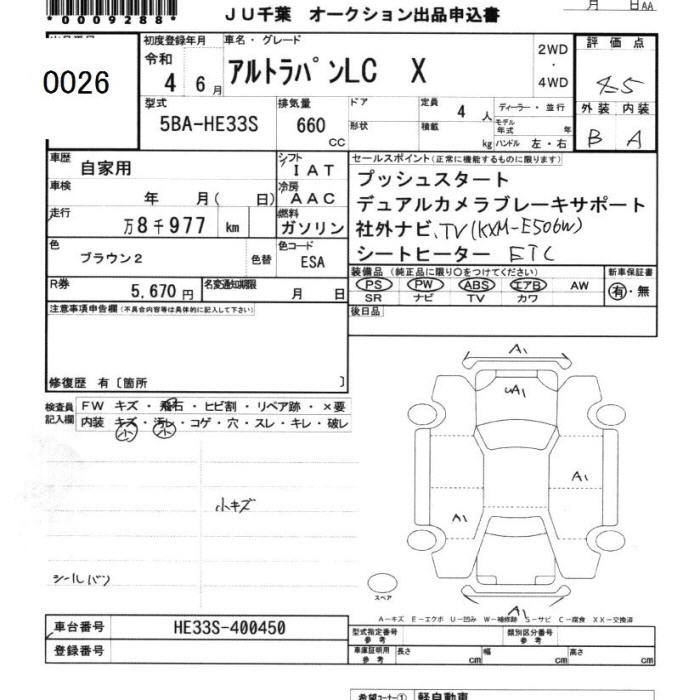 *0009288*
月 日AA
JU千葉 オークション出品申込書
0026
初度登録年月 車名・グレード 評価点
令和 4 6月 アルトラパンLC X 2WD・4WD 4.5
型式 排気量 ドア 定員 ディーラー・並行 外装 内装
5BA-HE33S 660 CC 形状 4人 積載 kg モデル年式 年 ハンドル 左・右 B A
車歴 自家用 シフト IAT セールスポイント(正常に機能するものに限ります)
車検 年 月( 日) 冷房 AAC プッシュスタート
デュアルカメラブレーキサポート
走行 万8千977 km 燃料 ガソリン 社外ナビ、TV(KXM-E506W)
色 ブラウン2 色替 色コード ESA シートヒーター ETC
R券 5,670円 名変通知期限 月 日 装備品(純正品に限り○をつけてください) 新車保証書
PS PW ABS エアB AW 有・無
SR ナビ TV カワ
注意事項申告欄(不具合内容等は具体的に記入して下さい) 後日品
修復歴 有〔箇所 〕
検査員記入欄 FW キズ・飛石・ヒビ割・リペア跡・×要
内装 キズ・汚レ・コゲ・穴・スレ・キレ・破レ
小 小
小キズ
シールバン
A1
A1
A1
A1
A1
スペア
A-キズ E-エクボ U-凹み W-補修跡 S-サビ C-腐食 XX-交換済
車台番号 HE33S-400450 型式指定番号 参考 類別区分番号 参考
登録番号 車庫証明用 参考 長さ cm 幅 cm 高さ cm
希望コーナー① 軽自動車